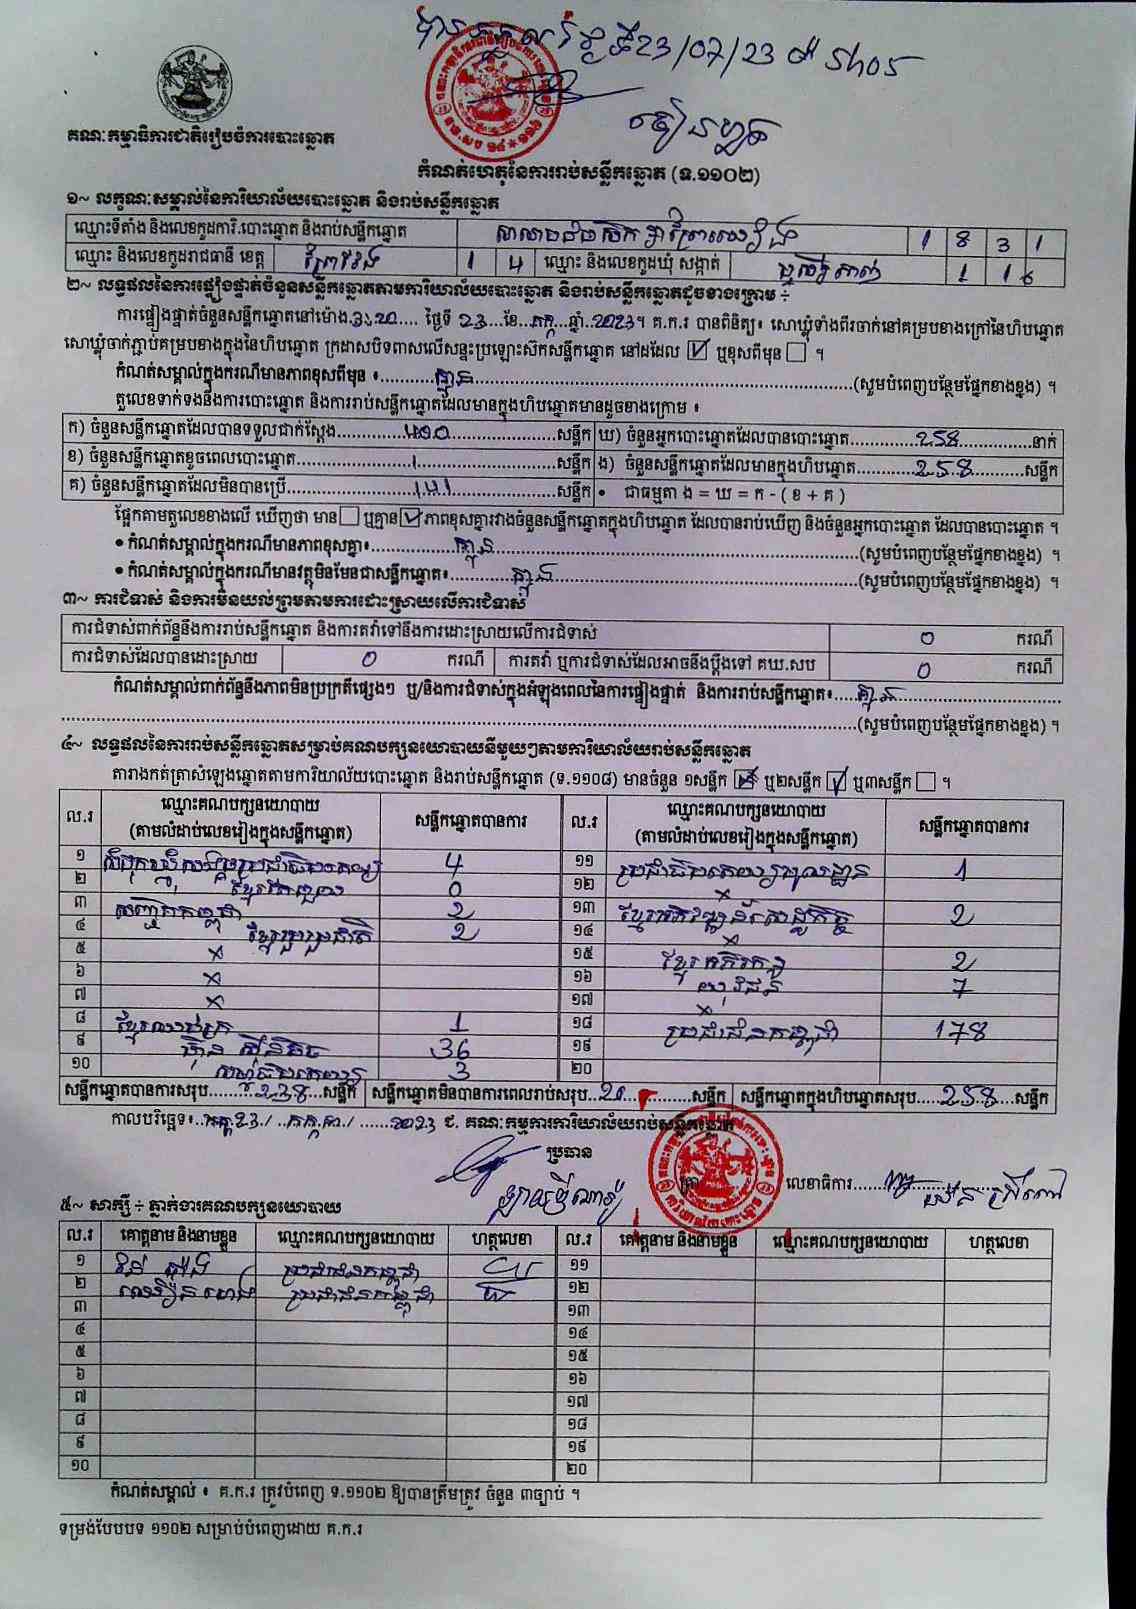 ថ្ងៃទី 23/07/23
គណៈកម្មាធិការជាតិរៀបចំការបោះឆ្នោត
កំណត់ហេតុនៃការរាប់សន្លឹកឆ្នោត (ទ.១១០២)
១~ លក្ខណៈសម្គាល់នៃការិយាល័យបោះឆ្នោត និងរាប់សន្លឹកឆ្នោត
ឈ្មោះទីតាំង និងលេខកូដការិ.បោះឆ្នោត និងរាប់សន្លឹកឆ្នោត 1 8 3 1
ឈ្មោះ និងលេខកូដរាជធានី ខេត្ត ព្រៃវែង 1 4 ឈ្មោះ និងលេខកូដឃុំ សង្កាត់ 1 1 6
២~ លទ្ធផលនៃការផ្ទៀងផ្ទាត់ចំនួនសន្លឹកឆ្នោតតាមការិយាល័យបោះឆ្នោត និងរាប់សន្លឹកឆ្នោតដូចខាងក្រោម ÷
ការផ្ទៀងផ្ទាត់ចំនួនសន្លឹកឆ្នោតនៅម៉ោង.3:20.... ថ្ងៃទី 23...ខែ..កក្កដា..ឆ្នាំ..2023។ គ.ក.រ បានពិនិត្យ៖ សោឃ្លុំទាំងពីរចាក់នៅគម្របខាងក្រៅនៃហិបឆ្នោត
សោឃ្លុំចាក់ភ្ជាប់គម្របខាងក្នុងនៃហិបឆ្នោត ក្រដាសបិទពាសលើសន្ទះប្រឡោះស៊កសន្លឹកឆ្នោត នៅដដែល ☑ ឬខុសពីមុន ☐ ។
កំណត់សម្គាល់ក្នុងករណីមានភាពខុសពីមុន ៖..........គ្មាន..........(សូមបំពេញបន្ថែមផ្នែកខាងខ្នង) ។
តួលេខទាក់ទងនឹងការបោះឆ្នោត និងការរាប់សន្លឹកឆ្នោតដែលមានក្នុងហិបឆ្នោតមានដូចខាងក្រោម ៖
ក) ចំនួនសន្លឹកឆ្នោតដែលបានទទួលជាក់ស្តែង..........សន្លឹក ឃ) ចំនួនអ្នកបោះឆ្នោតដែលបានបោះឆ្នោត..........258..........នាក់
ខ) ចំនួនសន្លឹកឆ្នោតខូចពេលបោះឆ្នោត..........1..........សន្លឹក ង) ចំនួនសន្លឹកឆ្នោតដែលមានក្នុងហិបឆ្នោត..........258..........សន្លឹក
គ) ចំនួនសន្លឹកឆ្នោតដែលមិនបានប្រើ..........141..........សន្លឹក • ជាធម្មតា ង = ឃ = ក - ( ខ + គ )
ផ្អែកតាមតួលេខខាងលើ ឃើញថា មាន ☐ ឬគ្មាន ☑ ភាពខុសគ្នារវាងចំនួនសន្លឹកឆ្នោតក្នុងហិបឆ្នោត ដែលបានរាប់ឃើញ និងចំនួនអ្នកបោះឆ្នោត ដែលបានបោះឆ្នោត ។
• កំណត់សម្គាល់ក្នុងករណីមានភាពខុសគ្នា៖..........គ្មាន..........(សូមបំពេញបន្ថែមផ្នែកខាងខ្នង) ។
• កំណត់សម្គាល់ក្នុងករណីមានវត្ថុមិនមែនជាសន្លឹកឆ្នោត៖..........គ្មាន..........(សូមបំពេញបន្ថែមផ្នែកខាងខ្នង) ។
៣~ ការជំទាស់ និងការមិនយល់ព្រមតាមការដោះស្រាយលើការជំទាស់
ការជំទាស់ពាក់ព័ន្ធនឹងការរាប់សន្លឹកឆ្នោត និងការតវ៉ាទៅនឹងការដោះស្រាយលើការជំទាស់ 0 ករណី
ការជំទាស់ដែលបានដោះស្រាយ 0 ករណី ការតវ៉ា ឬការជំទាស់ដែលអាចនឹងប្តឹងទៅ គឃ.សប 0 ករណី
កំណត់សម្គាល់ពាក់ព័ន្ធនឹងភាពមិនប្រក្រតីផ្សេងៗ ឬ/និងការជំទាស់ក្នុងអំឡុងពេលនៃការផ្ទៀងផ្ទាត់ និងការរាប់សន្លឹកឆ្នោត៖.....គ្មាន..........
..........(សូមបំពេញបន្ថែមផ្នែកខាងខ្នង) ។
៤~ លទ្ធផលនៃការរាប់សន្លឹកឆ្នោតសម្រាប់គណបក្សនយោបាយនីមួយៗតាមការិយាល័យរាប់សន្លឹកឆ្នោត
តារាងកត់ត្រាសំឡេងឆ្នោតតាមការិយាល័យបោះឆ្នោត និងរាប់សន្លឹកឆ្នោត (ទ.១១០៨) មានចំនួន ១សន្លឹក ឬ២សន្លឹក ☑ ឬ៣សន្លឹក ☐ ។
ល.រ ឈ្មោះគណបក្សនយោបាយ (តាមលំដាប់លេខរៀងក្នុងសន្លឹកឆ្នោត) សន្លឹកឆ្នោតបានការ ល.រ ឈ្មោះគណបក្សនយោបាយ (តាមលំដាប់លេខរៀងក្នុងសន្លឹកឆ្នោត) សន្លឹកឆ្នោតបានការ
១ សំបុកឃ្មុំសង្គមប្រជាធិបតេយ្យ 4 ១១ ប្រជាធិបតេយ្យមូលដ្ឋាន 1
២ 0 ១២ ×
៣ 2 ១៣ ខ្មែរអភិវឌ្ឍន៍សេដ្ឋកិច្ច 2
៤ ខ្មែររួបរួមជាតិ 2 ១៤ ×
៥ × ១៥ ខ្មែរអភិរក្ស 2
៦ × ១៦ យុវជន 7
៧ × ១៧ ×
៨ ខ្មែរឈប់ក្រ 1 ១៨ ប្រជាជនកម្ពុជា 178
៩ ហ៊្វុនស៊ិនប៉ិច 36 ១៩
១០ 3 ២០
សន្លឹកឆ្នោតបានការសរុប..238..សន្លឹក សន្លឹកឆ្នោតមិនបានការពេលរាប់សរុប..20..សន្លឹក សន្លឹកឆ្នោតក្នុងហិបឆ្នោតសរុប..258..សន្លឹក
កាលបរិច្ឆេទ៖..23./..កក្កដា./..2023 ជ. គណៈកម្មការការិយាល័យរាប់សន្លឹកឆ្នោត
ប្រធាន
លេខាធិការ
៥~ សាក្សី ÷ ភ្នាក់ងារគណបក្សនយោបាយ
ល.រ គោត្តនាម និងនាមខ្លួន ឈ្មោះគណបក្សនយោបាយ ហត្ថលេខា ល.រ គោត្តនាម និងនាមខ្លួន ឈ្មោះគណបក្សនយោបាយ ហត្ថលេខា
១ ប្រជាជនកម្ពុជា ១១
២ ប្រជាជនកម្ពុជា ១២
៣ ១៣
៤ ១៤
៥ ១៥
៦ ១៦
៧ ១៧
៨ ១៨
៩ ១៩
១០ ២០
កំណត់សម្គាល់ ៖ គ.ក.រ ត្រូវបំពេញ ទ.១១០២ ឱ្យបានត្រឹមត្រូវ ចំនួន ៣ច្បាប់ ។
ទម្រង់បែបបទ ១១០២ សម្រាប់បំពេញដោយ គ.ក.រ